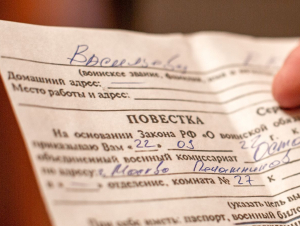 Васильеву
(воинское звание, фамилия, имя и
Домашний адрес:
Место работы и адрес:
ПОВЕСТКА
Се
На основании Закона РФ "О воинской обяз
приказываю Вам "22" 09
объединенный военный комиссариат
по адресу: г. Москва
отделение, комната № 27 К
(указать цель вы
При себе иметь: паспорт, военный билет